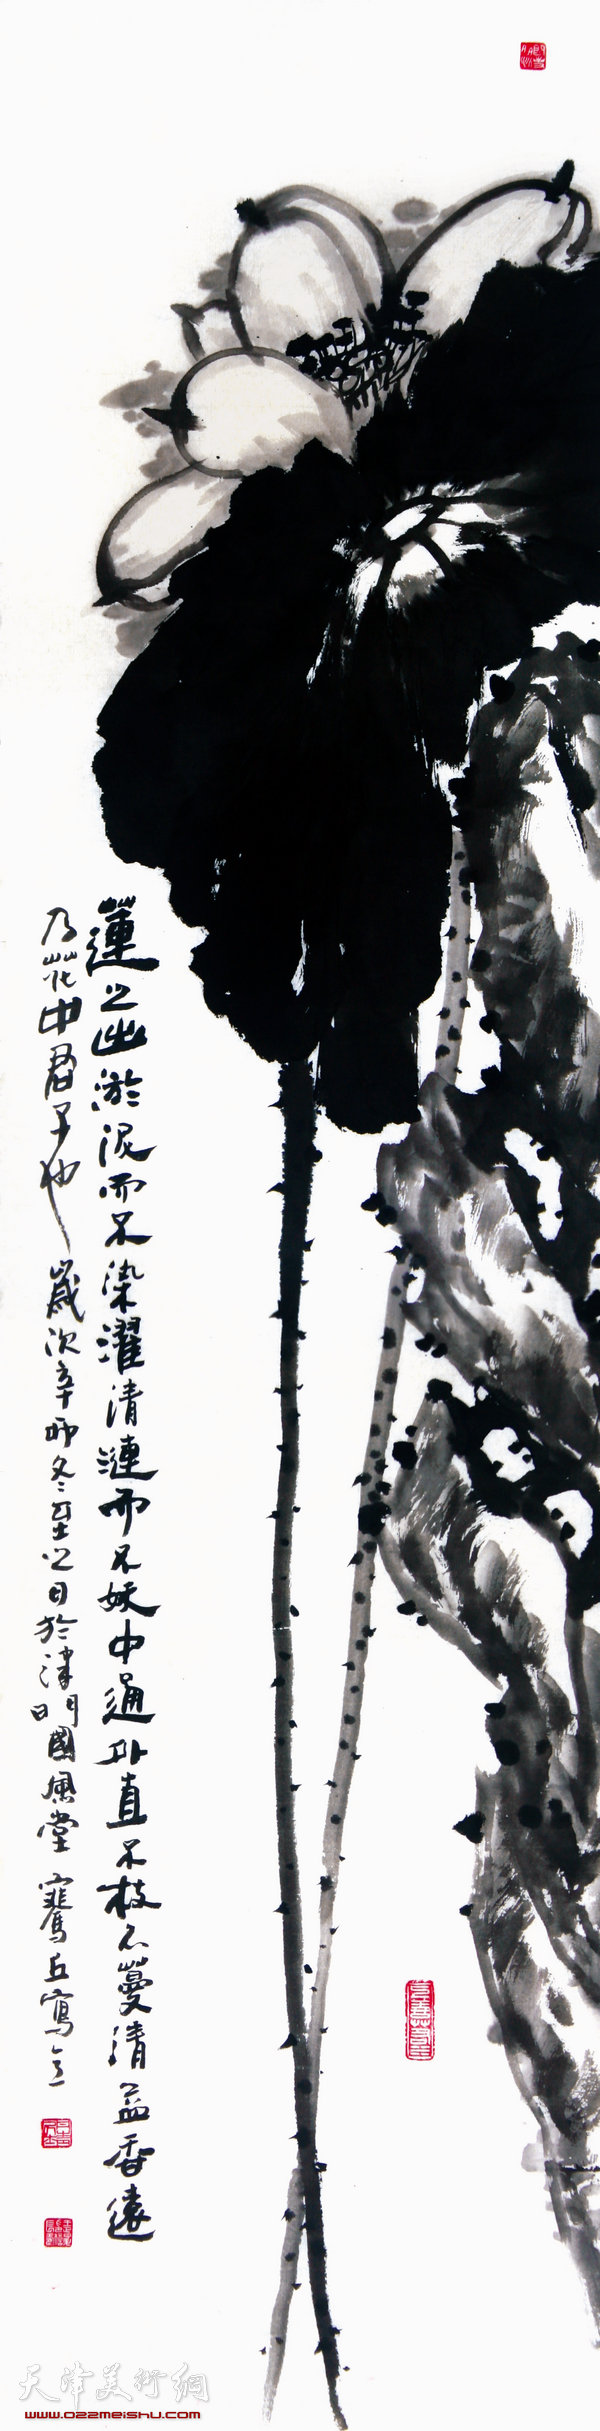 蓮之出淤泥而不染濯清漣而不妖中通外直不枝不蔓清益香遠
乃花中君子也歲次辛卯冬至之日於津門國風堂騫丘寫意
天津美術網
www.022meishu.com